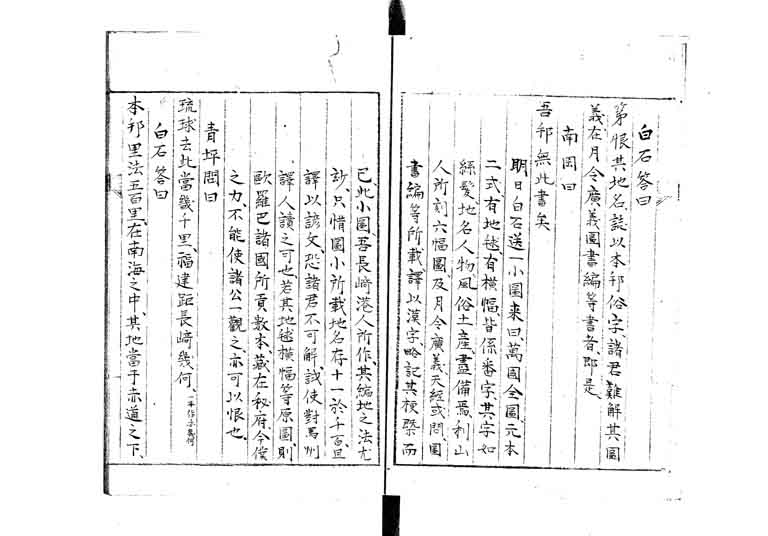 白石答曰
第恨其地名誌以本邦俗字諸君難解其圖
義在月令廣義圖書編等書者即是
南岡曰
吾邦無此書矣
明日白石送一小圖来曰萬國全圖元本
二式有地毬有横幅皆係番字其字如
絲髮地名人物風俗土産盡備焉利山
人所刻六幅圖及月令廣義天經或問圖
書編等所載譯以漢字略記其梗槩而
已此小圖吾長崎港人所作其縮地之法尤
妙只惜圖小所載地名存十一於千百且
譯以諺文恐諸君不可解試使對馬州
譯人讀之可也若其地毬横幅等原圖則
歐羅巴諸國所貢数本藏在秘府今僕
之力不能使諸公一觀之亦可以恨也
青坪問曰
琉球去此當幾千里福建距長崎幾何
白石答曰
本邦里法五百里在南海之中其地當于赤道之下